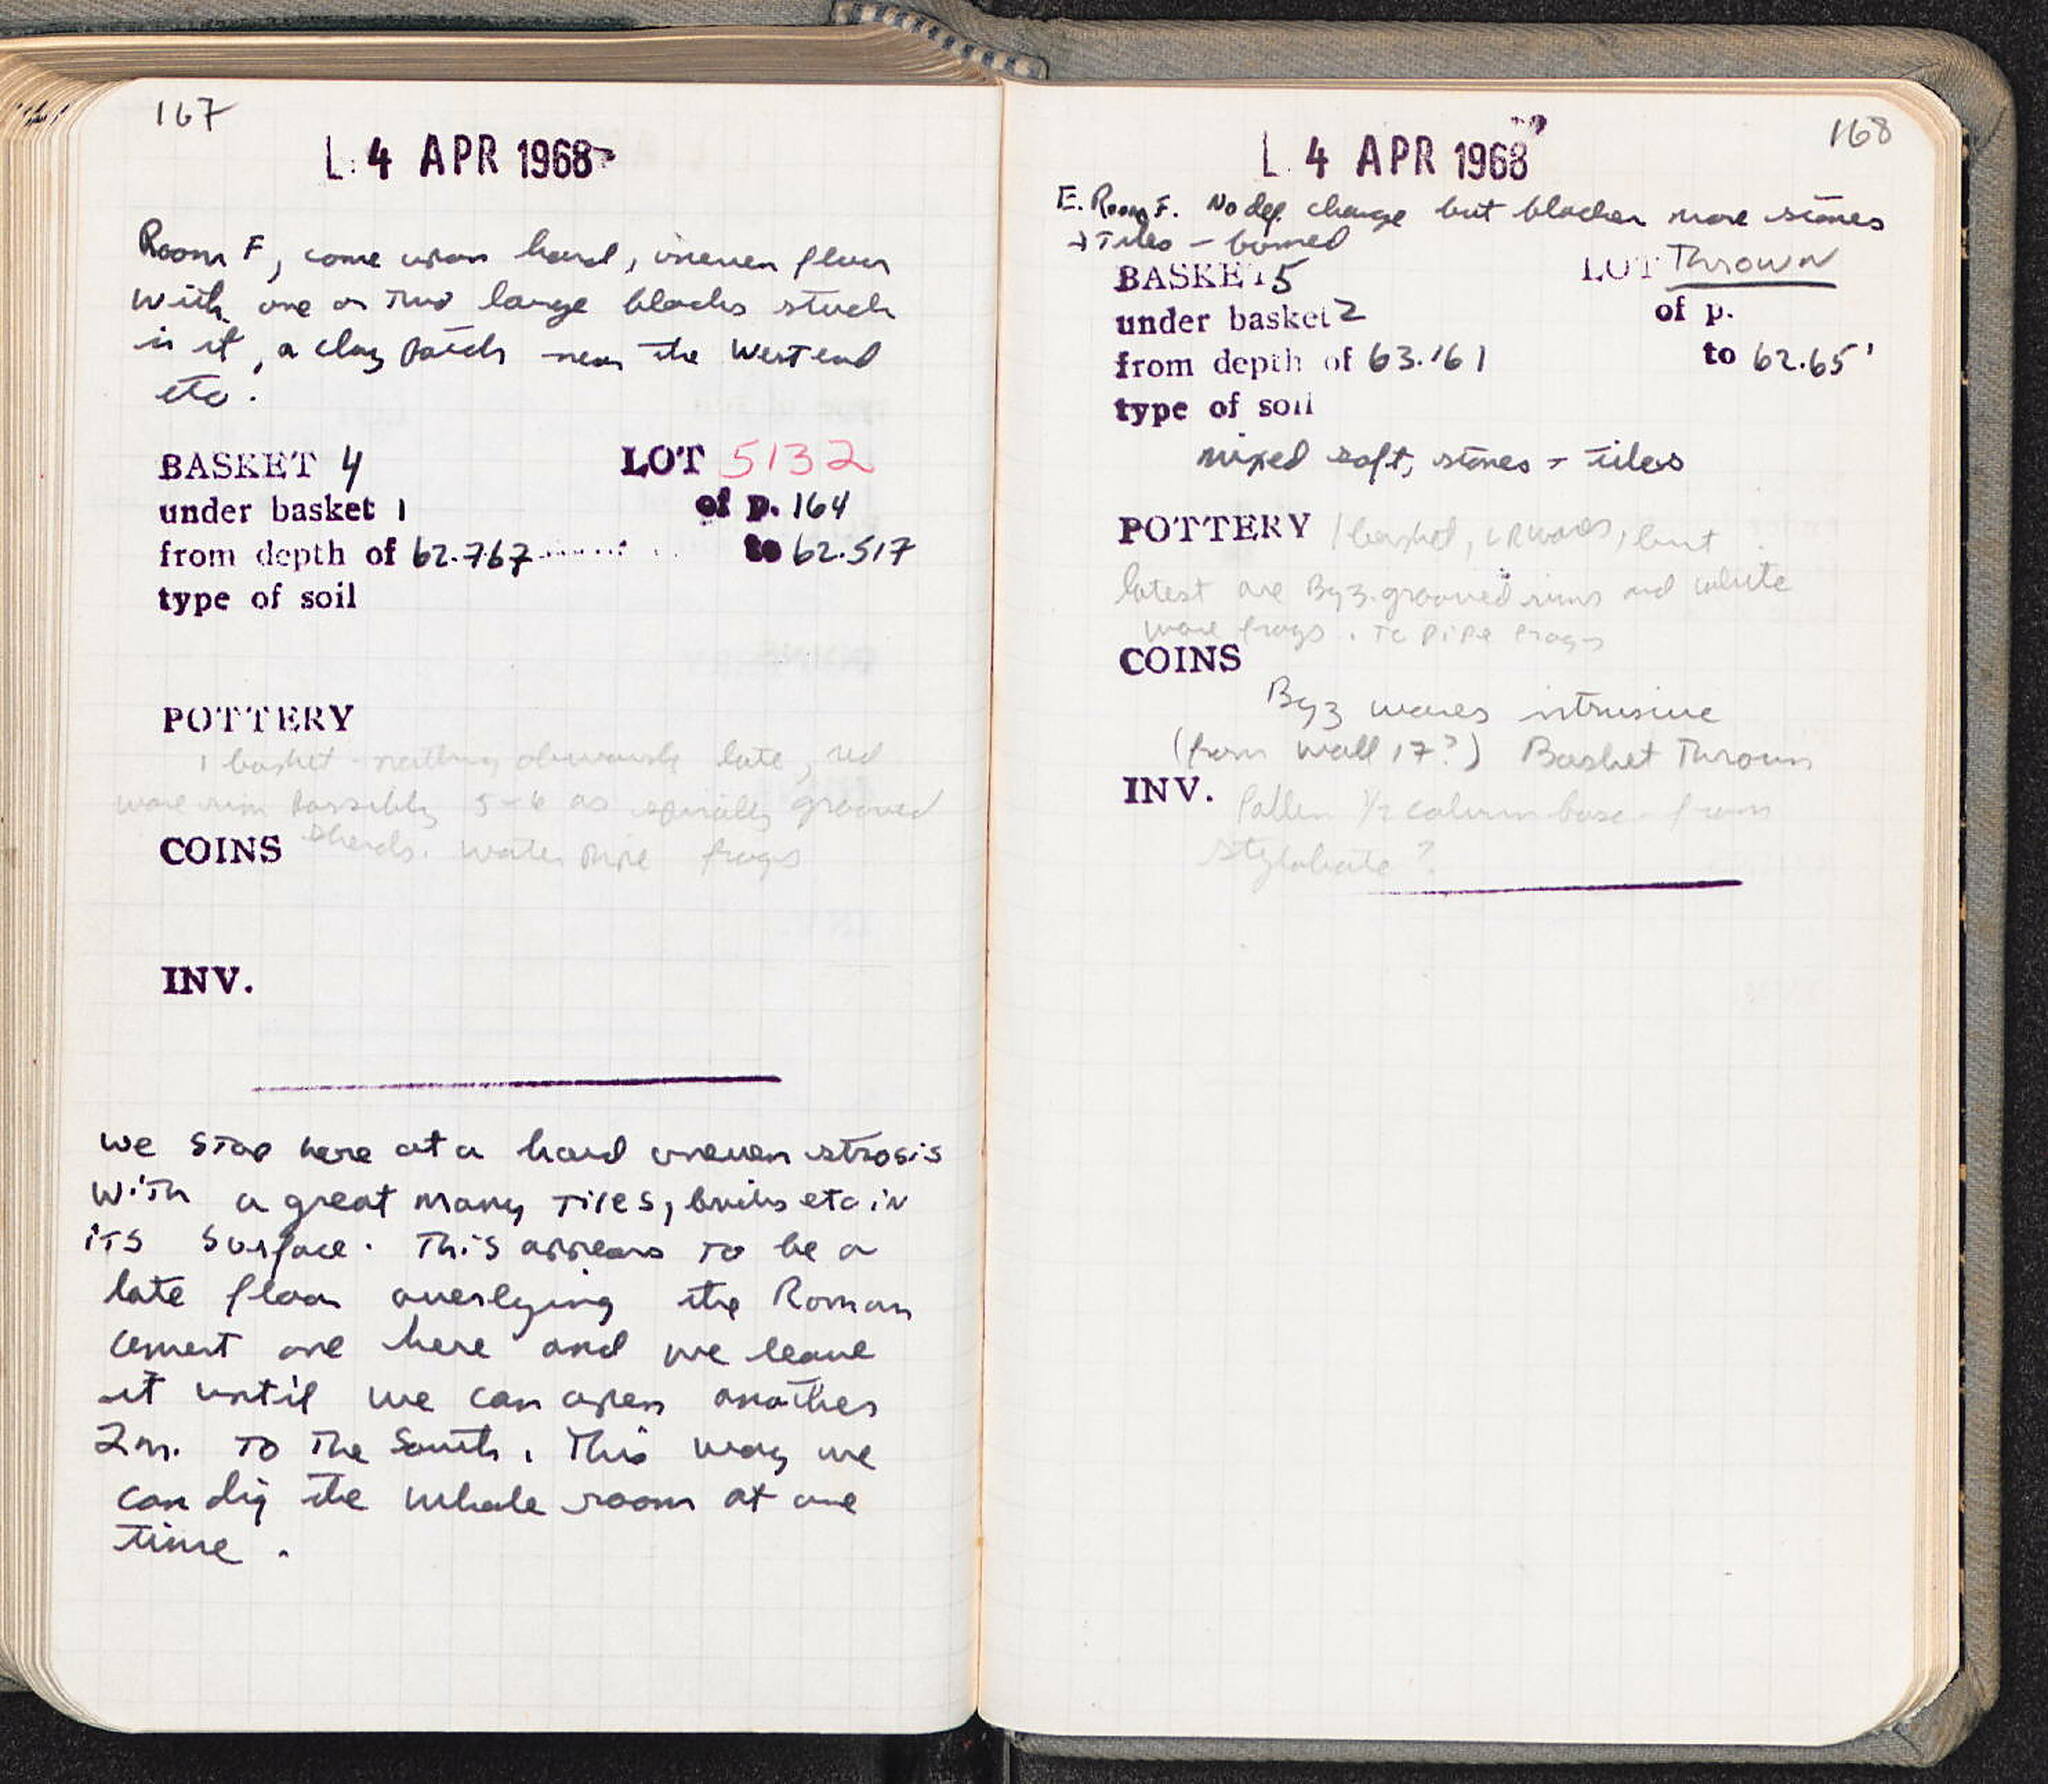 167
L 4 APR 1968
Room F, come upon hard, uneven floor
with one or two large blocks stuck
in it, a clay patch near the West end
etc.
BASKET 4 LOT 5132
under basket 1 of p. 164
from depth of 62.767 to 62.517
type of soil
POTTERY
1 basket - nothing obviously late, red
ware rim possibly 5-6 as spirally grooved
sherds. water pipe frags
COINS
INV.
We stop here at a hard uneven strosis
with a great many tiles, bricks etc in
its surface. This appears to be a
late floor overlying the Roman
cement one here and we leave
it until we can open another
2m. to the South. This way we
can dig the whole room at one
time.
168
L 4 APR 1968
E. Room F. No def. change but blacker more stones
+ Tiles - burned
BASKET 5 LOT Thrown
under basket 2 of p.
from depth of 63.161 to 62.65'
type of soil
mixed soft, stones + tiles
POTTERY 1 basket, LR wares, but
latest are Byz. grooved rims and white
ware frags. TC pipe frags
COINS
Byz wares intrusive
(from wall 17?) Basket Thrown
INV. fallen 1/2 column base - from
stylobate?